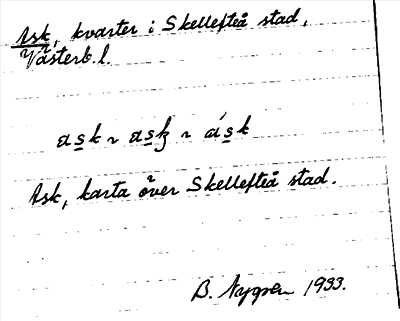 Ask, kvarter i Skellefteå stad,
Västerb. l.
ask ~ ask ~ ásk
Ask, karta över Skellefteå stad.
B. Nygren 1933.